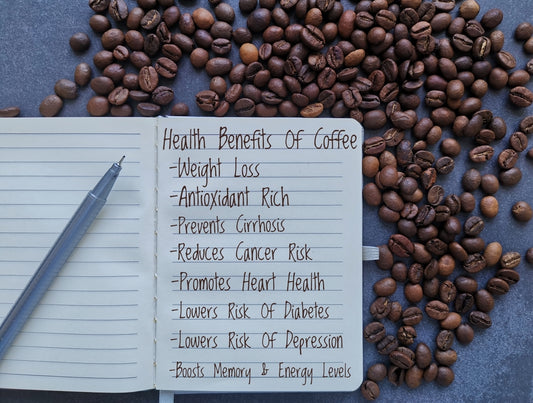 Health Benefits Of Coffee
-Weight Loss
-Antioxidant Rich
-Prevents Cirrhosis
-Reduces Cancer Risk
-Promotes Heart Health
-Lowers Risk Of Diabetes
-Lowers Risk Of Depression
-Boosts Memory & Energy Levels